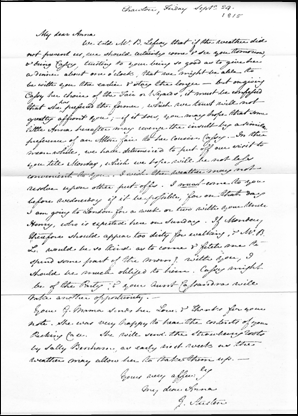 Chawton, Friday Septr. 29.
1815
My dear Anna
We told Mr. B. Lefroy that if the weather did
not prevent us, we should certainly come & see you tomorrow
& bring Cassy, trusting to your being so good as to give her
a dinner about one o'clock, that we might be able to
be with you the earlier & stay the longer - but on giving
Cassy her choice of the Fair or Wyards, it must be confessed
that she has preferred the former, which we trust will not
greatly affront you; - if it does, you may hope that some
little Anna hereafter may revenge the insult by a similar
preference of an Alton fair to her Cousin Cassy. - In the
meanwhile, we have determined to put off our visit to
you till Monday, which we hope will be not less
convenient to You. - I wish the weather may not
resolve upon other put-offs. I must come to you
before Wednesday if it be possible, for on that day
I am going to London for a week or two with your Uncle
Henry, who is expected here on Sunday. If Monday
therefore should appear too dirty for walking, & Mr. B.
L. would be so kind as to come & fetch me to
spend some part of the morng. with you, I
should be much obliged to him. Cassy might
be of the Party, & your Aunt Cassandra will
take another opportunity. -
Your G. Mama sends her Love & Thanks for your
note. She was very happy to hear the contents of your
Packing Case. - She will send the Strawberry roots
by Sally Benham, as early next week as the
weather may allow her to take them up. -
Yours very affecly
My dear Anna
J. Austen